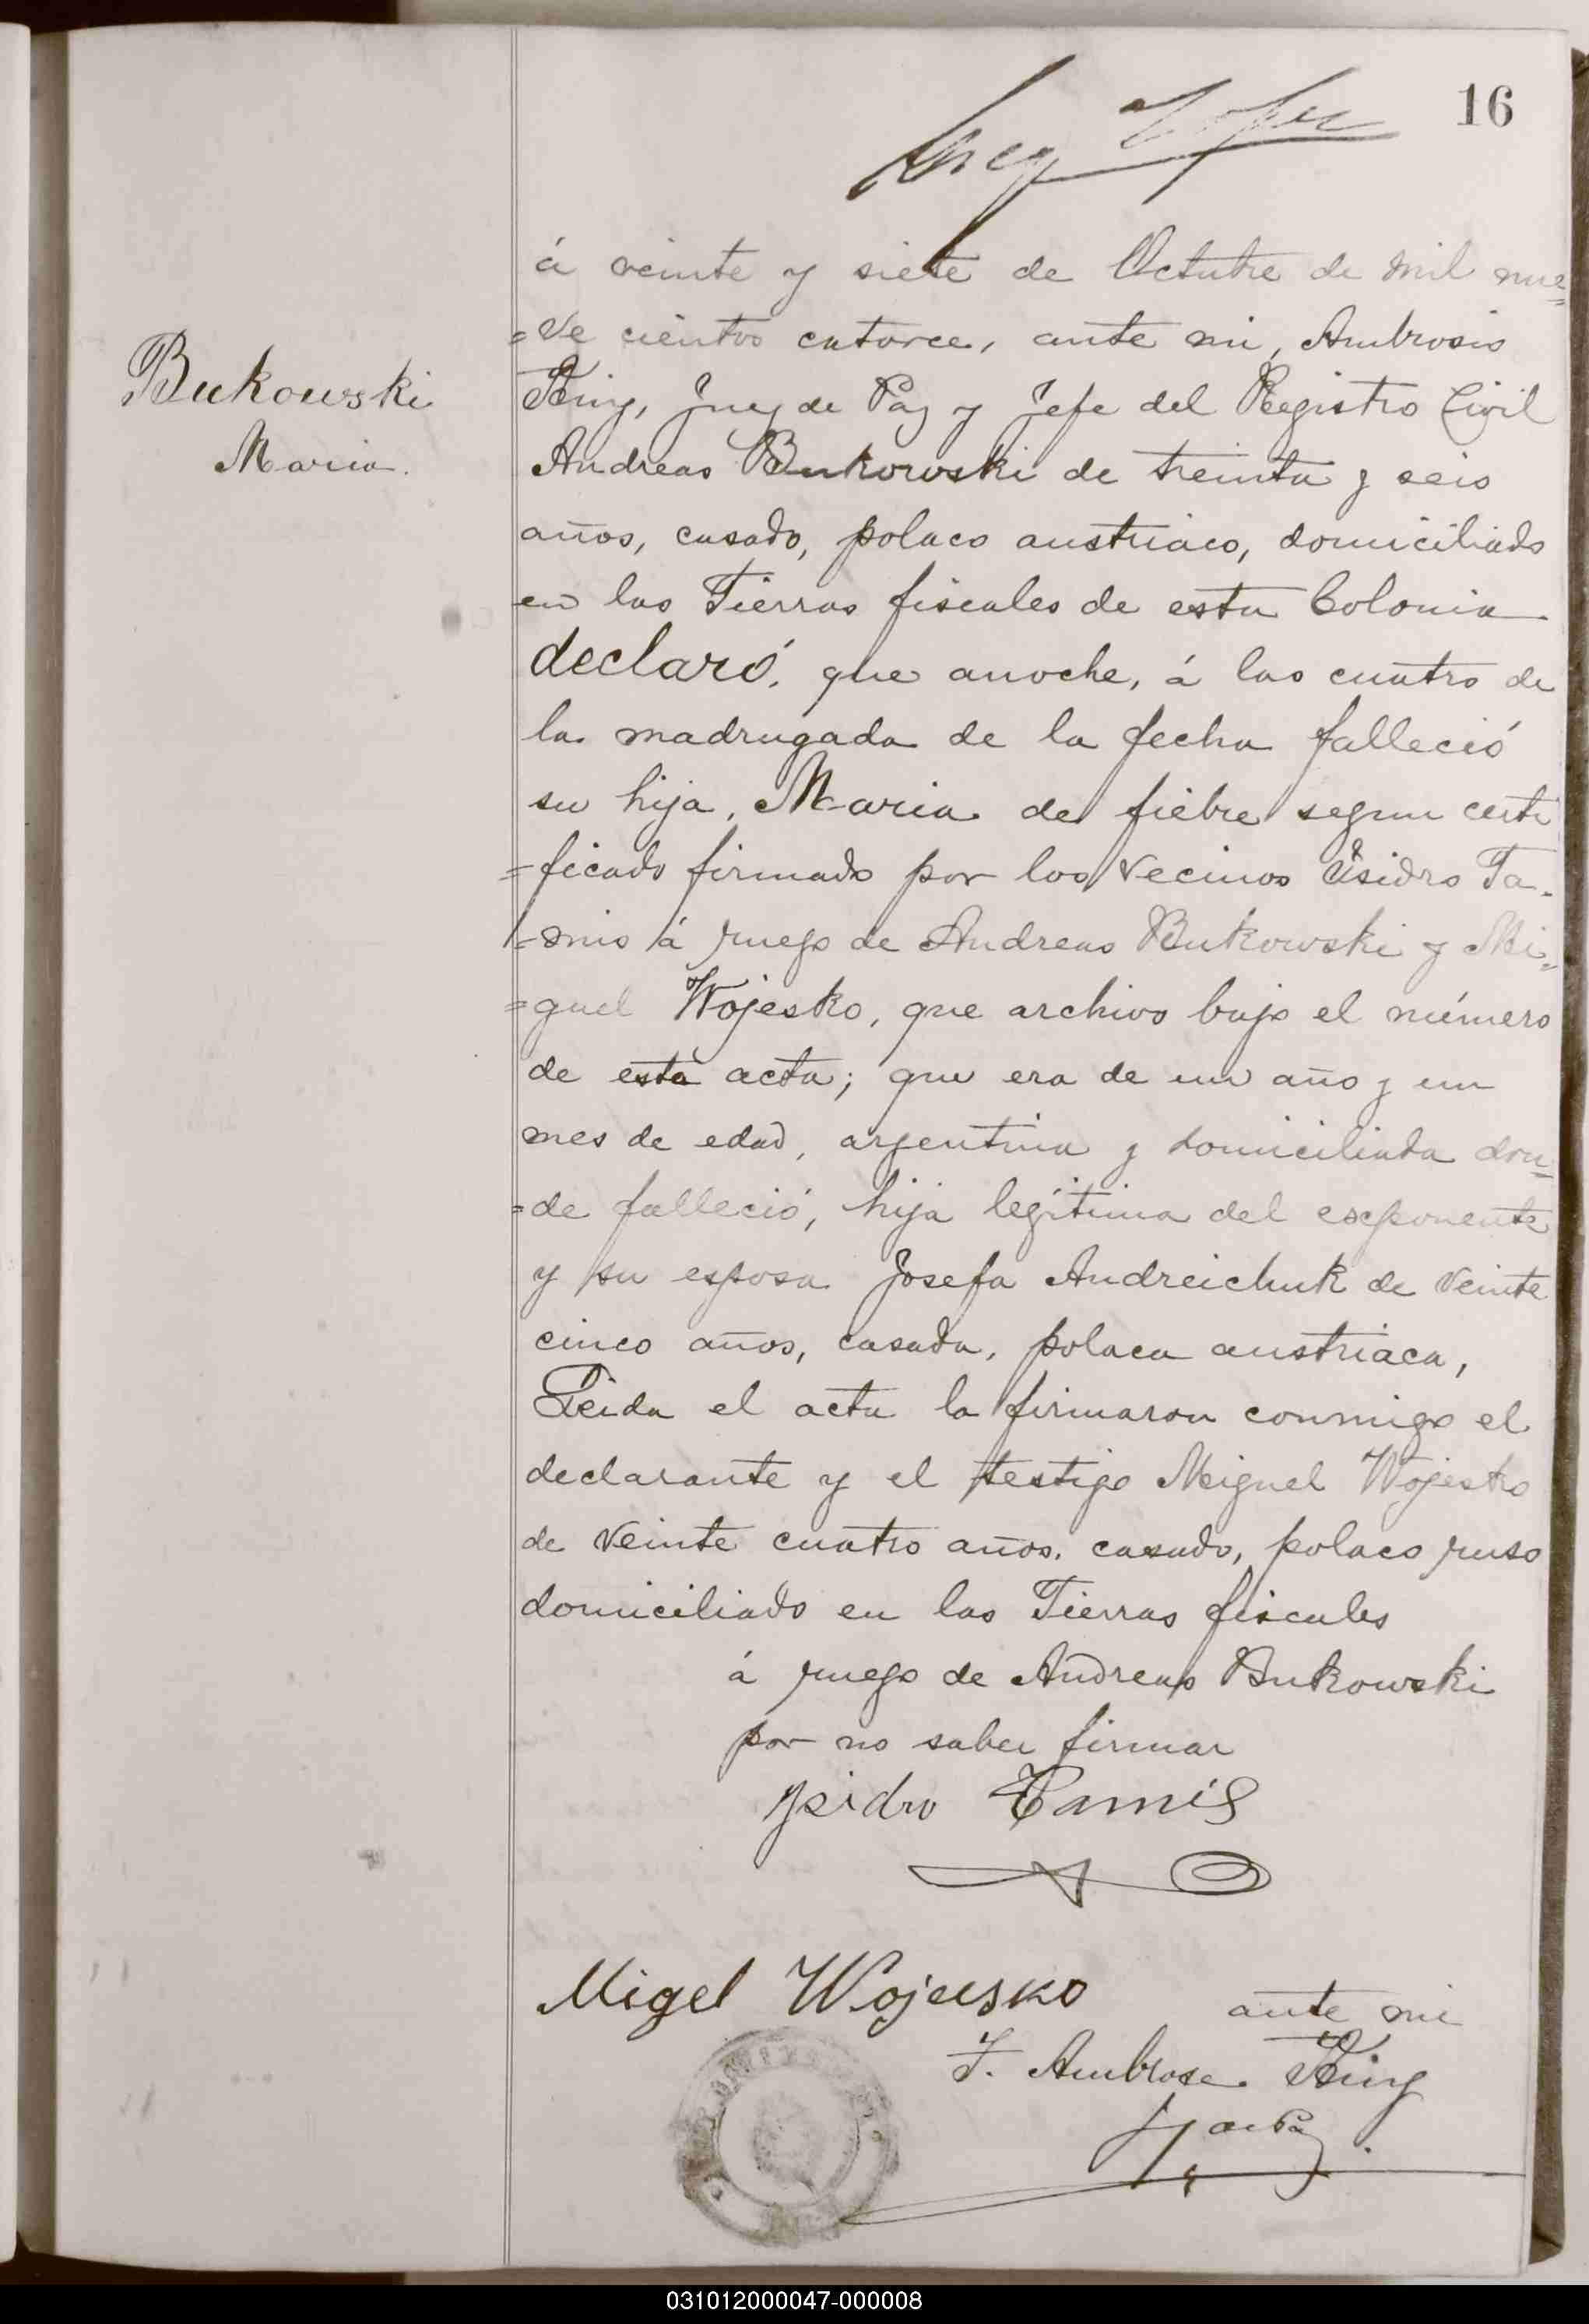 16
á veinte y siete de Octubre de mil nue=
=ve cientos catorce, ante mi, Ambrosio
King, Juez de Paz y Jefe del Registro Civil
Bukowski
Maria.
Andreas Bukowski de treinta y seis
años, casado, polaco austriaco, domiciliado
en las Tierras fiscales de esta Colonia
declaró, que anoche, á las cuatro de
la madrugada de la fecha falleció
su hija, Maria de fiebre segun certi
=ficado firmado por los vecinos Isidro Ta=
=mis á ruego de Andreas Bukowski y Mi=
=guel Wojesko, que archivo bajo el número
de esta acta; que era de un año y un
mes de edad, argentina y domiciliada don=
=de falleció, hija legítima del exponente
y su esposa Josefa Andreichuk de veinte
cinco años, casada, polaca austriaca,
Leida el acta la firmaron conmigo el
declarante y el testigo Miguel Wojesko
de veinte cuatro años, casado, polaco ruso
domiciliado en las Tierras fiscales
á ruego de Andreas Bukowski
por no saber firmar
Ysidro Tamis
Migel Wojeusko
ante mi
F. Ambrose King
031012000047-000008